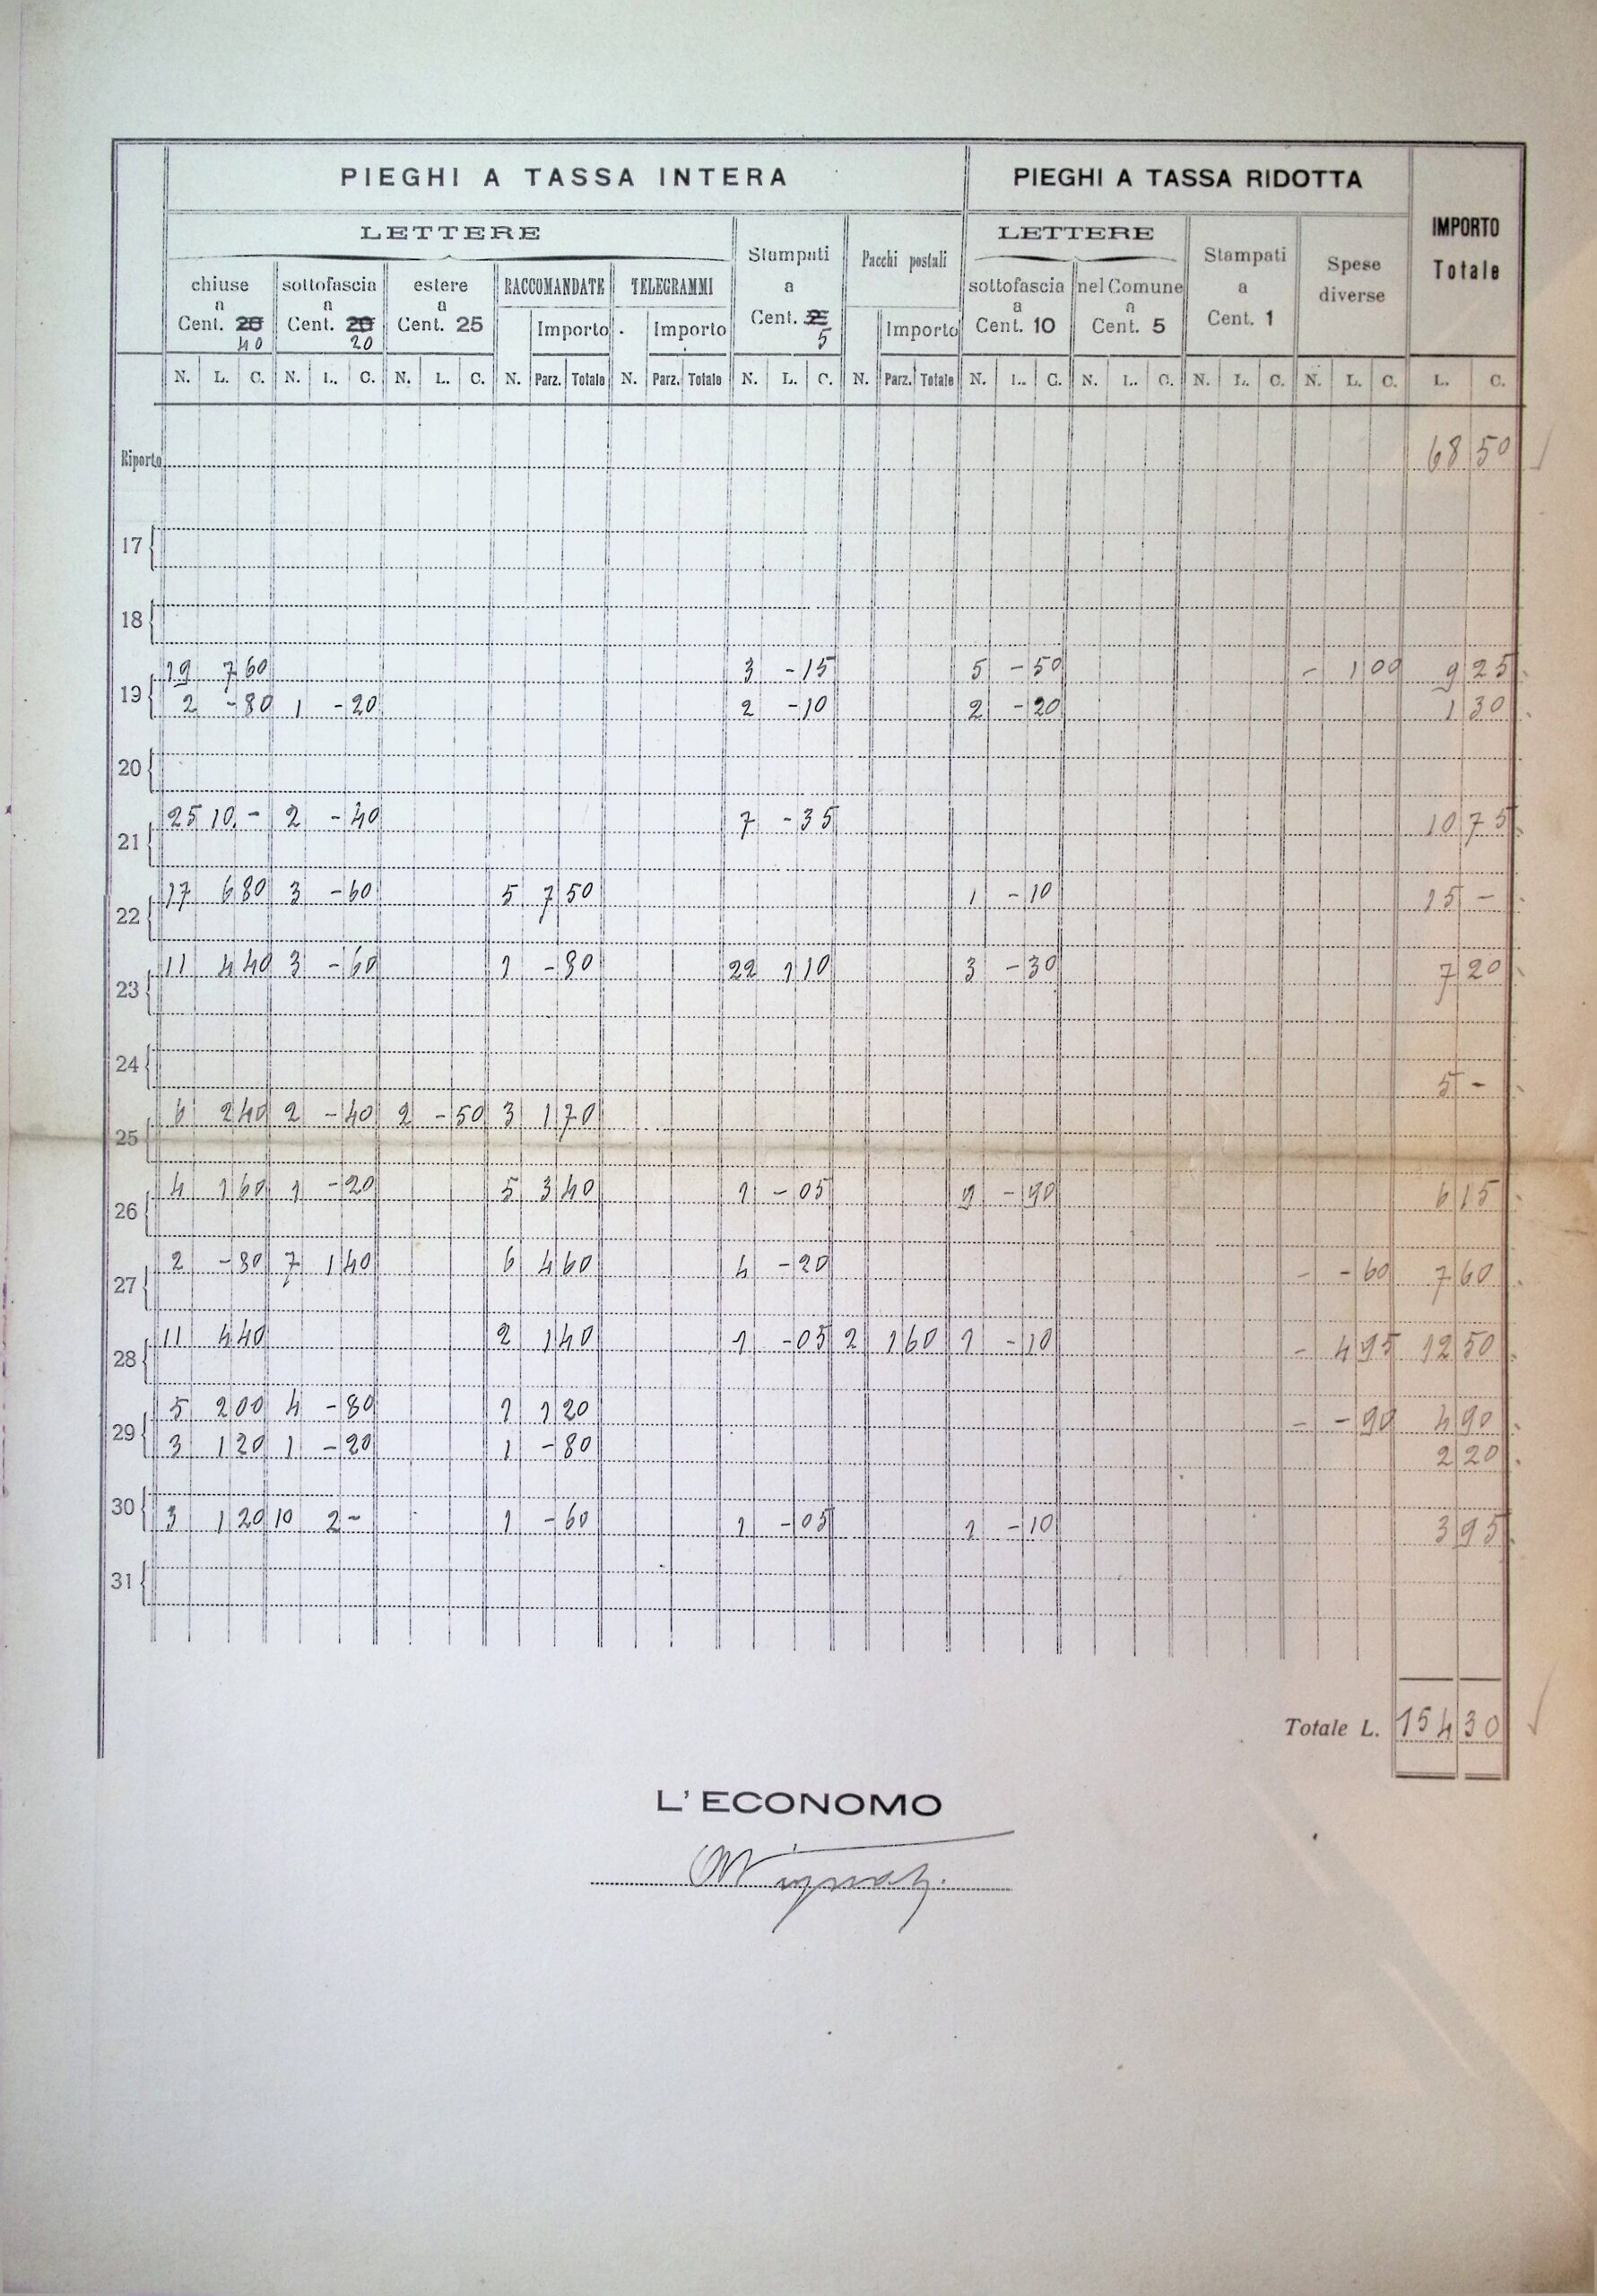 PIEGHI A TASSA INTERA PIEGHI A TASSA RIDOTTA IMPORTO Totale
LETTERE Stampati a Cent. 25 5 Pacchi postali LETTERE Stampati a Cent. 1 Spese diverse
chiuse a Cent. 20 40 sottofascia a Cent. 20 20 estere a Cent. 25 RACCOMANDATE TELEGRAMMI sottofascia a Cent. 10 nel Comune a Cent. 5
Importo Importo Importo
N. L. C. N. L. C. N. L. C. N. Parz. Totale N. Parz. Totale N. L. C. N. Parz. Totale N. L. C. N. L. C. N. L. C. N. L. C. L. C.
Riporto 68 50
17
18
19 19 7 60 3 - 15 5 - 50 - 1 00 9 25
2 - 80 1 - 20 2 - 10 2 - 20 1 30
20
21 25 10 - 2 - 40 7 - 35 10 75
22 17 6 80 3 - 60 5 7 50 1 - 10 15 -
23 11 4 40 3 - 60 1 - 80 22 1 10 3 - 30 7 20
24
5 -
25 6 2 40 2 - 40 2 - 50 3 1 70
26 4 1 60 1 - 20 5 3 40 1 - 05 9 - 90 6 15
27 2 - 80 7 1 40 6 4 60 4 - 20 - - 60 7 60
28 11 4 40 2 1 40 1 - 05 2 1 60 1 - 10 - 4 95 12 50
29 5 2 00 4 - 80 1 1 20 - - 90 4 90
3 1 20 1 - 20 1 - 80 2 20
30 3 1 20 10 2 - 1 - 60 1 - 05 1 - 10 3 95
31
Totale L. 154 30
L' ECONOMO